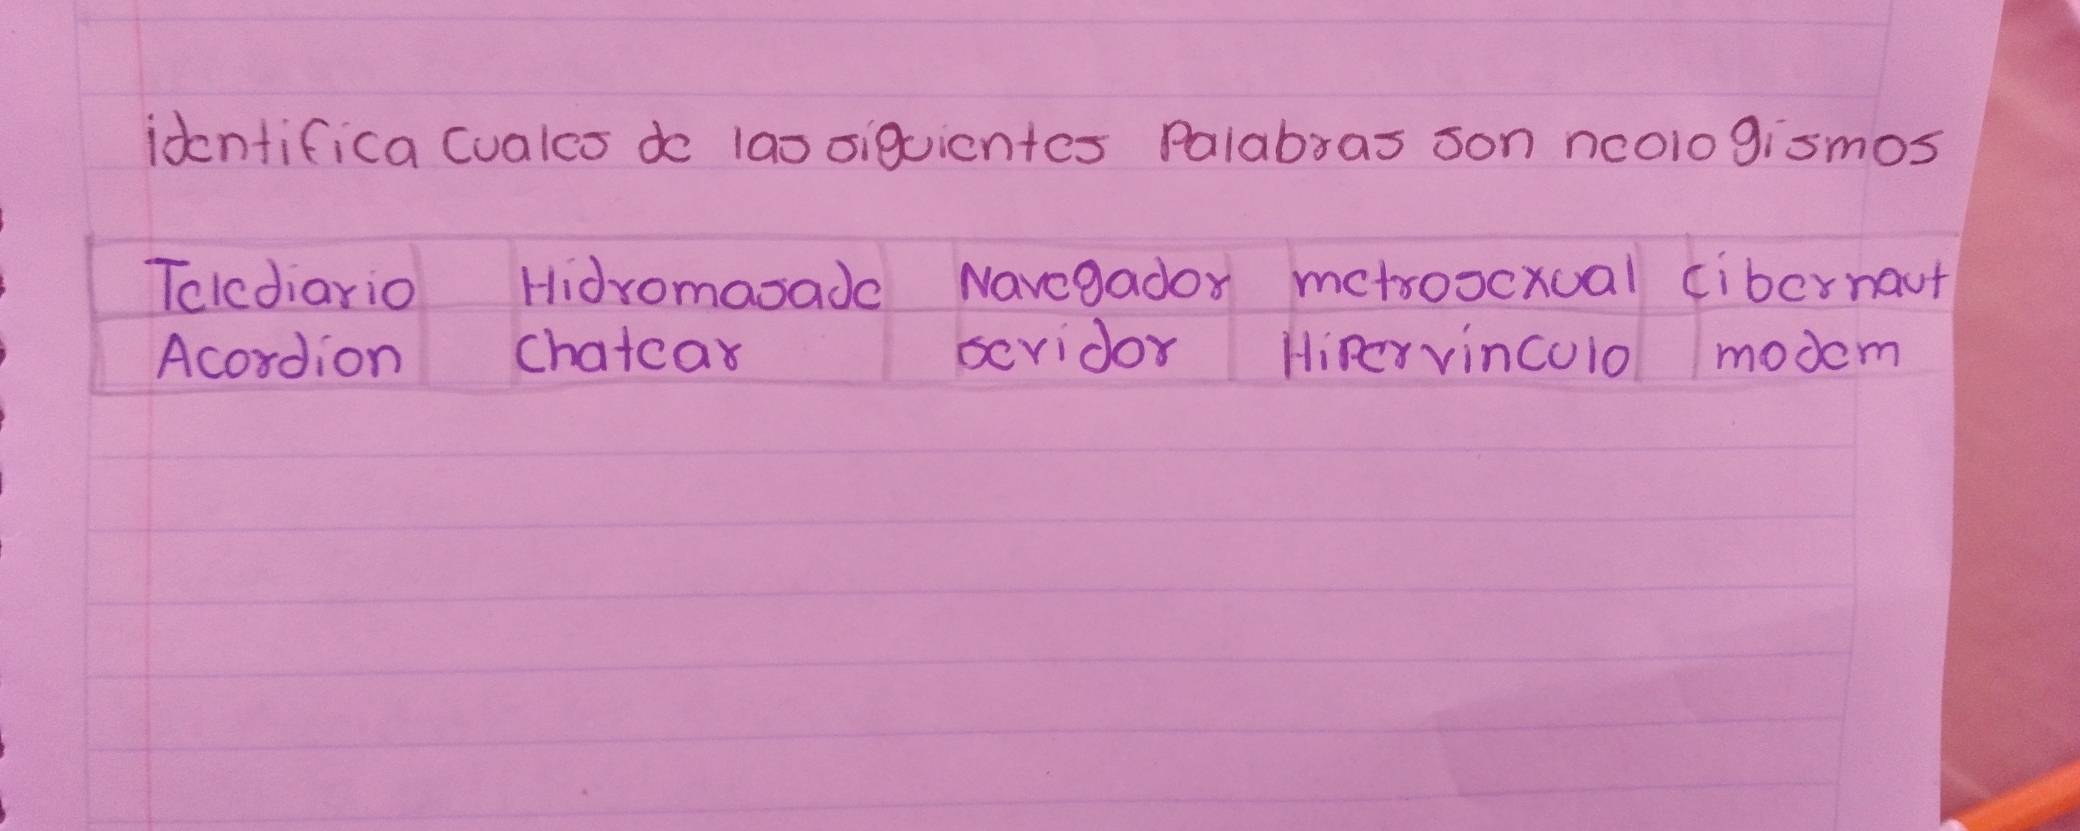 identifica cuales de las siguientes Palabras son neologismos
Telediario Hidromasade Navegador metrosexual cibernaut
Acordion chatear servidor Hipervinculo modem